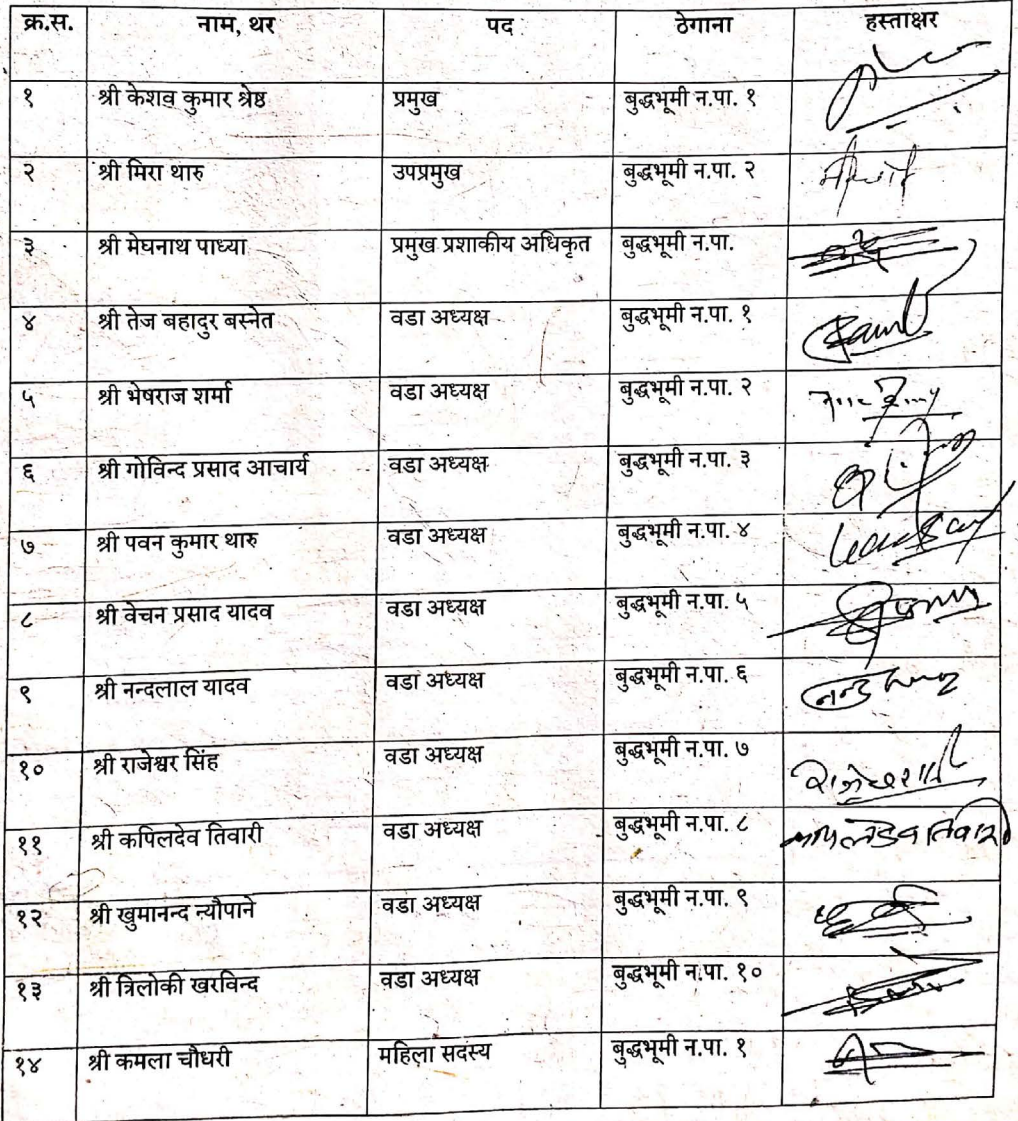 क्र.स. नाम, थर पद ठेगाना हस्ताक्षर
१ श्री केशव कुमार श्रेष्ठ प्रमुख बुद्धभूमी न.पा. १
२ श्री मिरा थारु उपप्रमुख बुद्धभूमी न.पा. २
३ श्री मेघनाथ पाध्या प्रमुख प्रशाकीय अधिकृत बुद्धभूमी न.पा.
४ श्री तेज बहादुर बस्नेत वडा अध्यक्ष बुद्धभूमी न.पा. १
५ श्री भेषराज शर्मा वडा अध्यक्ष बुद्धभूमी न.पा. २
६ श्री गोविन्द प्रसाद आचार्य वडा अध्यक्ष बुद्धभूमी न.पा. ३
७ श्री पवन कुमार थारु वडा अध्यक्ष बुद्धभूमी न.पा. ४
८ श्री वेचन प्रसाद यादव वडा अध्यक्ष बुद्धभूमी न.पा. ५
९ श्री नन्दलाल यादव वडा अध्यक्ष बुद्धभूमी न.पा. ६
१० श्री राजेश्वर सिंह वडा अध्यक्ष बुद्धभूमी न.पा. ७
११ श्री कपिलदेव तिवारी वडा अध्यक्ष बुद्धभूमी न.पा. ८ कपिलदेव तिवारी
१२ श्री खुमानन्द न्यौपाने वडा अध्यक्ष बुद्धभूमी न.पा. ९
१३ श्री त्रिलोकी खरविन्द वडा अध्यक्ष बुद्धभूमी न.पा. १०
१४ श्री कमला चौधरी महिला सदस्य बुद्धभूमी न.पा. १